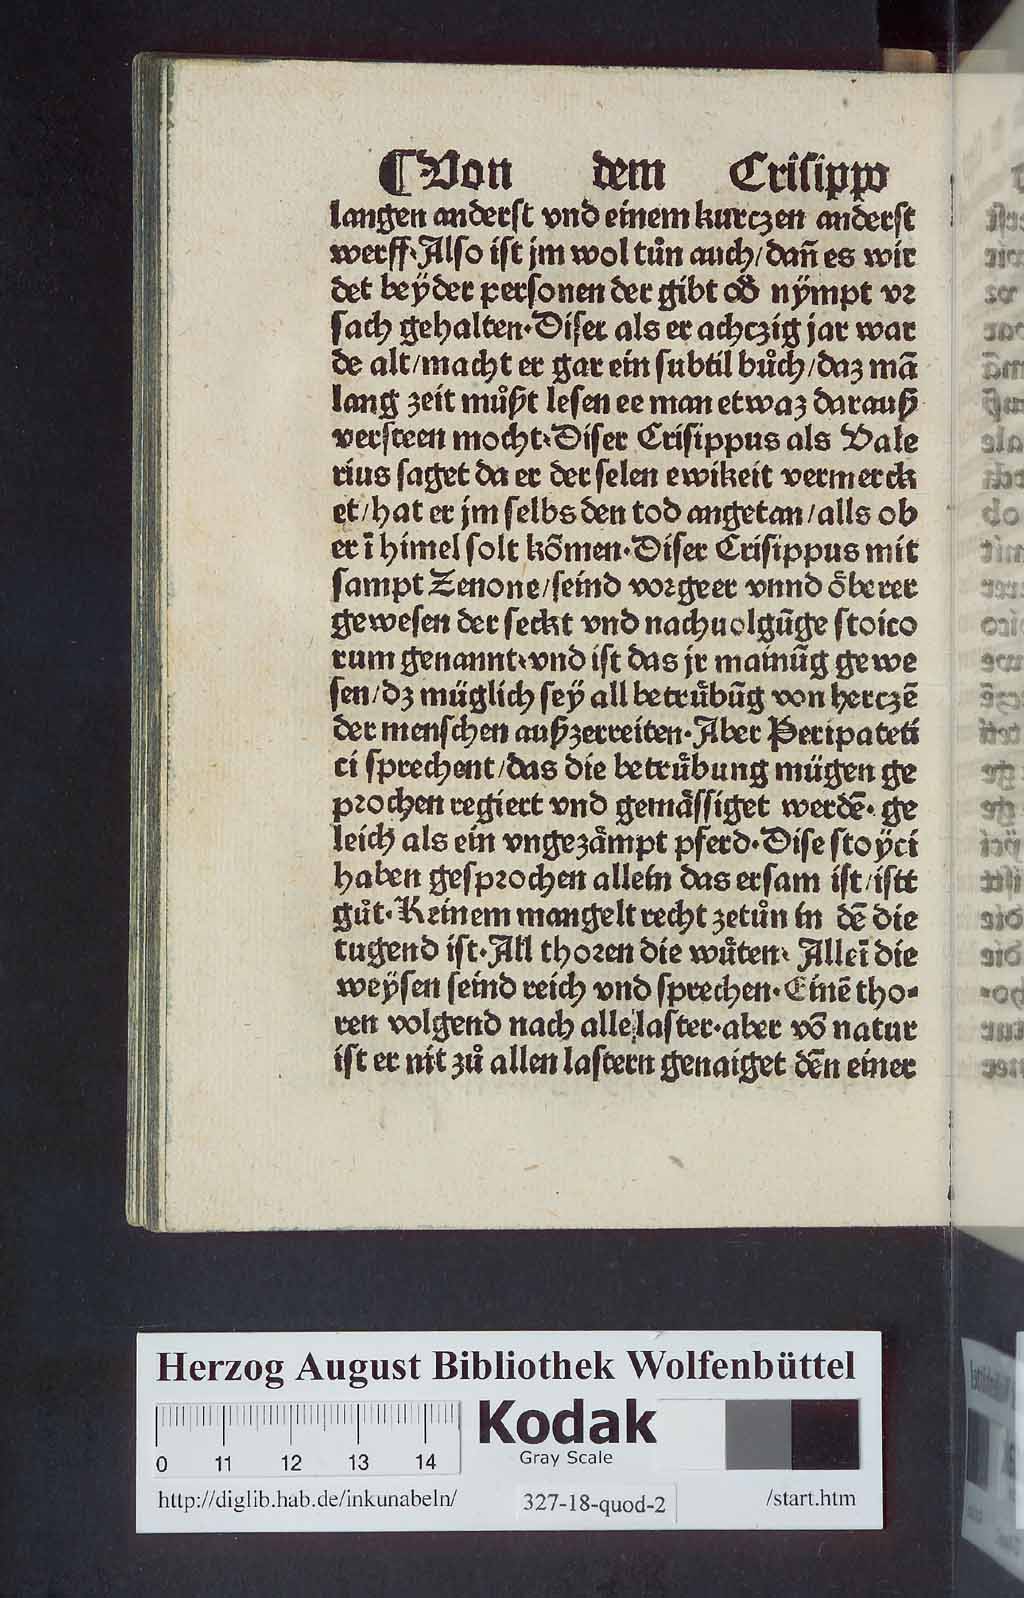 ¶ Von dem Crisippo
langen anderst vnd einem kurczen anderst
werff. Also ist jm wol tůn auch/ dañ es wir
det beÿder personen der gibt od̉ nÿmpt vꝛ
sach gehalten. Diser als er achczig jar war
de alt/ macht er gar ein subtil bůch/ daz mā
lang zeit můßt lesen ee man etwaz darauß
versteen mocht. Diser Crisippus als Vale
rius saget da er der selen ewikeit vermerck
et/ hat er jm selbs den tod angetan/ alls ob
er ī himel solt kōmen. Diser Crisippus mit
sampt Zenone/ seind voꝛgeer vnnd oͤberer
gewesen der seckt vnd nachuolgūge stoico
rum genannt. vnd ist das jr mainūg gewe
sen/ dz müglich seÿ all betruͤbūg von herczē
der menschen außzerreiten. Aber Peripateti
ci sprechent/ das die betruͤbung mügen ge
pꝛochen regiert vnd gemaͤssiget werdē. ge
leich als ein vngezaͤmpt pferd. Dise stoÿci
haben gespꝛochen allein das ersam ist/ istt
gůt. Keinem mangelt recht zetůn in dē die
tugend ist. All thoꝛen die wuͤten. Alleī die
weÿsen seind reich vnd sprechen. Einē tho⸗
ren volgend nach alle laster. aber vō natur
ist er nit zů allen lastern genaiget dēn einer
Herzog August Bibliothek Wolfenbüttel
Kodak
Gray Scale
0 11 12 13 14
http://diglib.hab.de/inkunabeln/ 327-18-quod-2 /start.htm